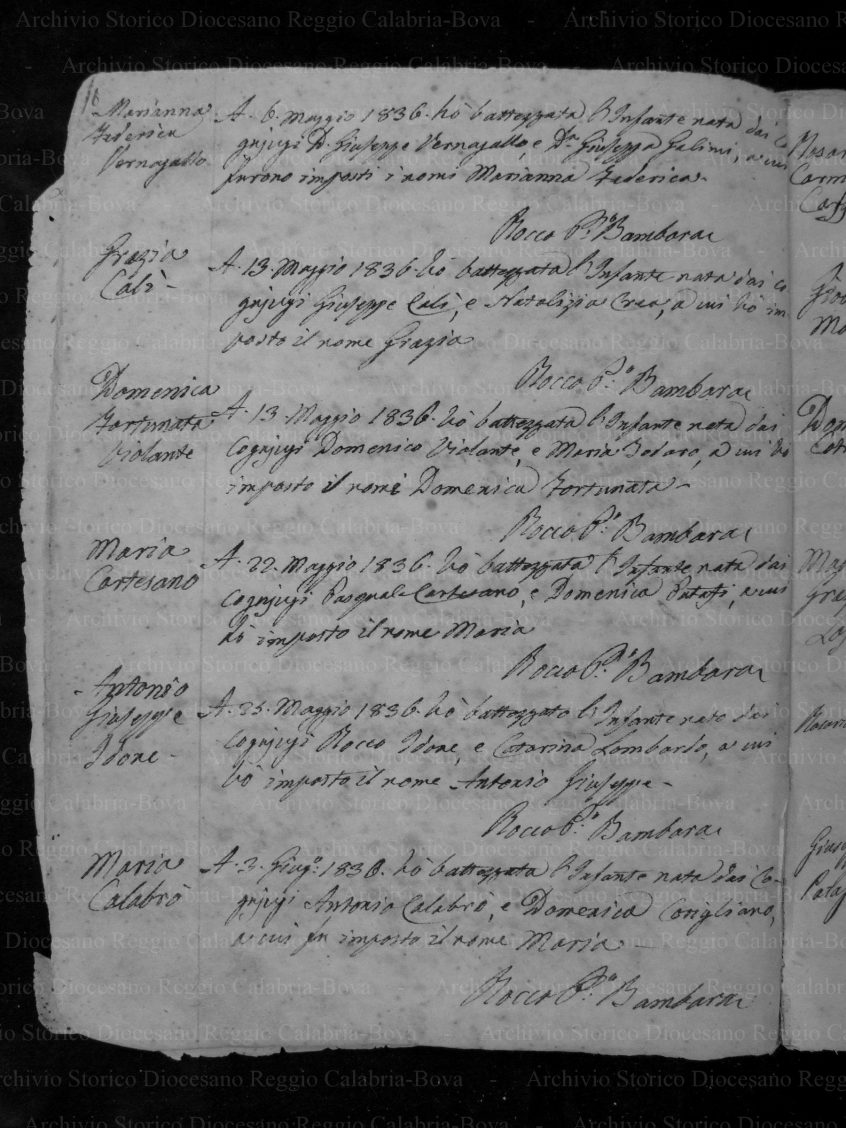 Marianna
Federica
Vernagallo
A. 6. Maggio 1836. hò battezzata l'Infante nata dai Co
gnjugi D. Giuseppe Vernagallo, e D.a Giuseppa Galimi, a cui
furono imposti i nomi Marianna Federica.
Rocco P.o Bambara
Grazia
Calì -
A. 13. Maggio 1836. hò battezzata l'Infante nata dai co
gnjugi Giuseppe Calì, e Natalizia Crea, a cui hò im
posto il nome Grazia
Rocco P.o Bambara
Domenica
Fortunata
Violante
A. 13. Maggio 1836. hò battezzata l'Infante nata dai
Cognjugi Domenico Violante, e Maria Bodaro, a cui hò
imposto il nome Domenica Fortunata -
Rocco P.o Bambara
Maria
Cortesano
A. 22. Maggio 1836. hò battezzata l'Infante nata dai
Cognjugi Pasquale Cortesano, e Domenica Putafi, a cui
hò imposto il nome Maria
Rocco P.o Bambara
Antonio
Giuseppe
Idone -
A. 25. Maggio 1836. hò battezzato l'Infante nato dai
Cognjugi Rocco Idone, e Catarina Lombardo, a cui
hò imposto il nome Antonio Giuseppe -
Rocco P.o Bambara
Maria
Calabrò
A. 2. Giug.o 1836. hò battezzata l'Infante nata dai Co-
gnjugi Antonio Calabrò, e Domenica Corigliano,
a cui fu imposto il nome Maria
Rocco P.o Bambara
Archivio Storico Diocesano Reggio Calabria-Bova